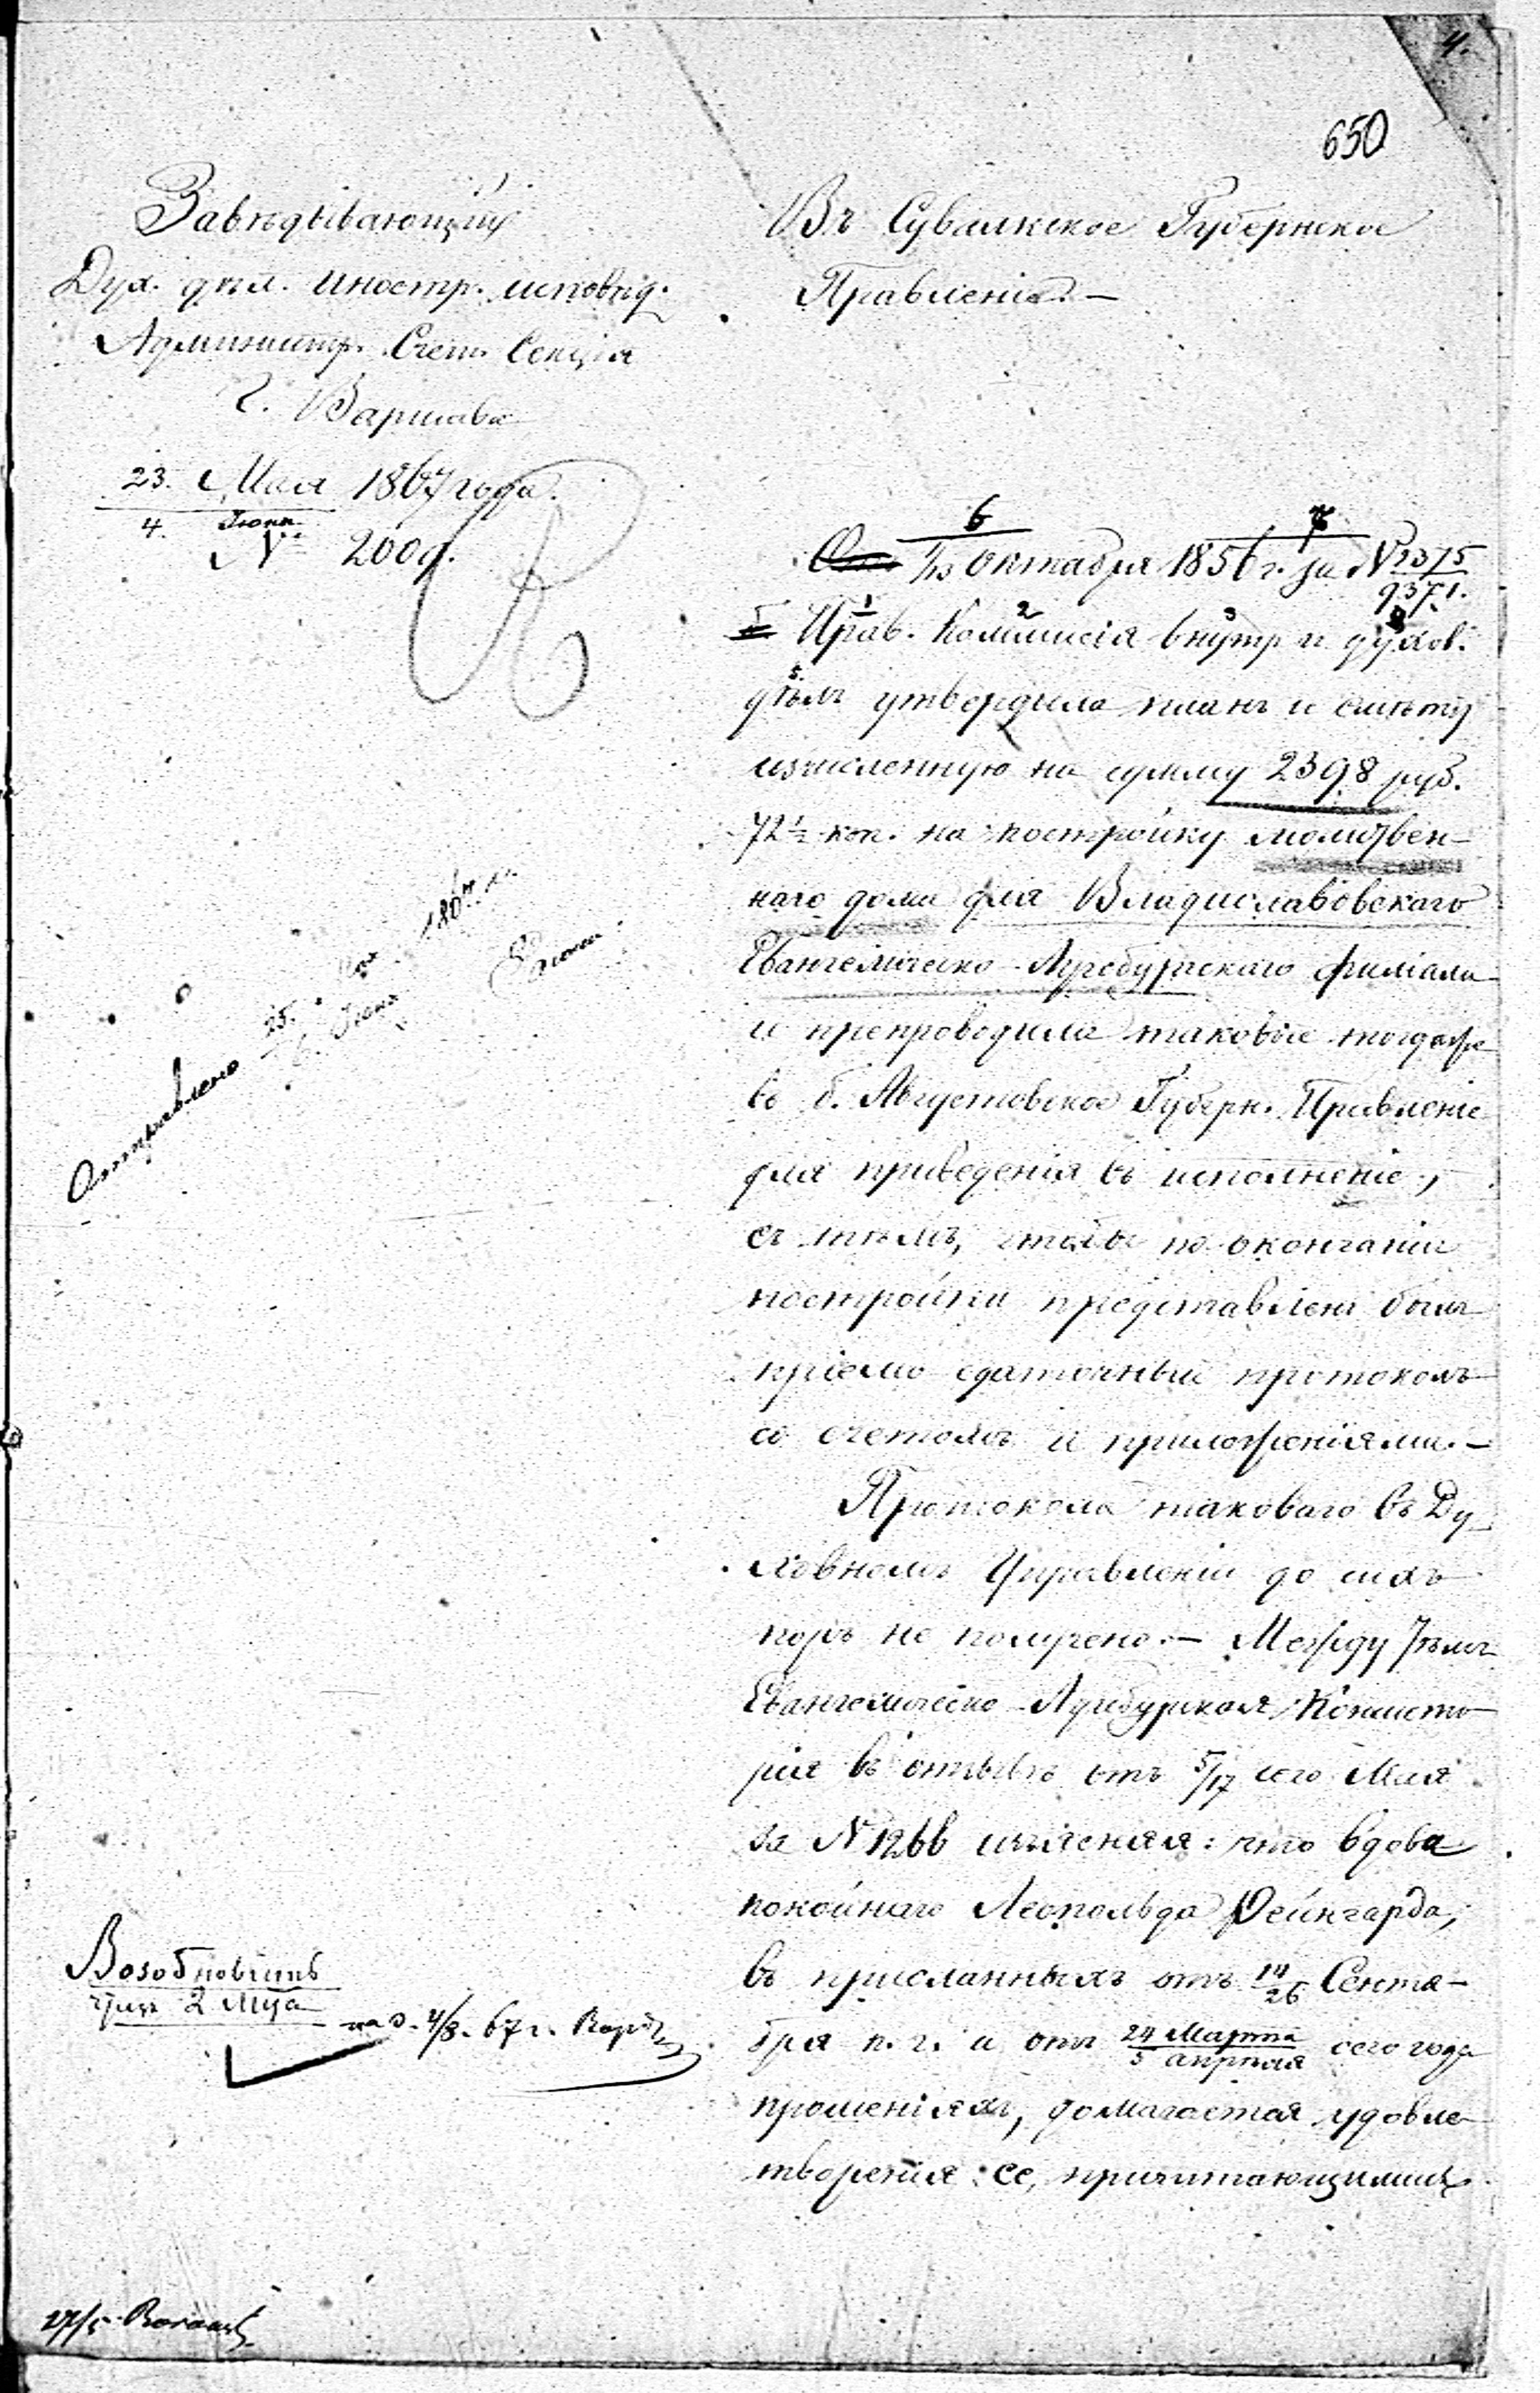 4.
650
Завѣдывающій
Дух. дѣл. Иностр. исповѣд.
Администр. Счетн. Секція
г. Варшава
23. Мая 1867 года.
4. Іюня
№ 2009.
Въ Сувалкское Губернское
Правленіе.—
6 7
1/13 Октября 1856 г. за № 2375
9371.
1 2 3
Прав. Коммисія внутр и духов.
5.
дѣлъ утвердила планъ и смѣту
изчисленную на сумму 2398 руб.
72½ коп. на постройку молитвен-
наго дома для Владиславовскаго
Евангелическо-Аугсбургскаго филіала
и препроводила таковые тогда же
въ б. Августовское Губерн. Правленіе
для приведенія въ исполненіе,
съ тѣмъ, чтобы по окончаніи
постройки представленъ былъ
пріемо сдаточный протоколъ
со счетомъ и приложеніями.—
Протокола таковаго въ Ду-
ховномъ Управленіи до сихъ
поръ не получено.— Между тѣмъ
Евангелическо-Аугсбургская Консисто-
рія въ отзывѣ отъ 5/17 сего Мая
за № 1266 изъясняя: что вдова
покойнаго Леопольда Рейнгарда,
въ присланныхъ отъ 14/26 Сентя-
бря п. г. и отъ 24 Марта / 5 апрѣля сего года
прошеніяхъ, домагается удовле-
творенія ее, причитающимися
Отправлено 25. 6. Іюня 1867 г.
Возобновить
чрезъ 2 мца
4/8. 67 г.
27/5